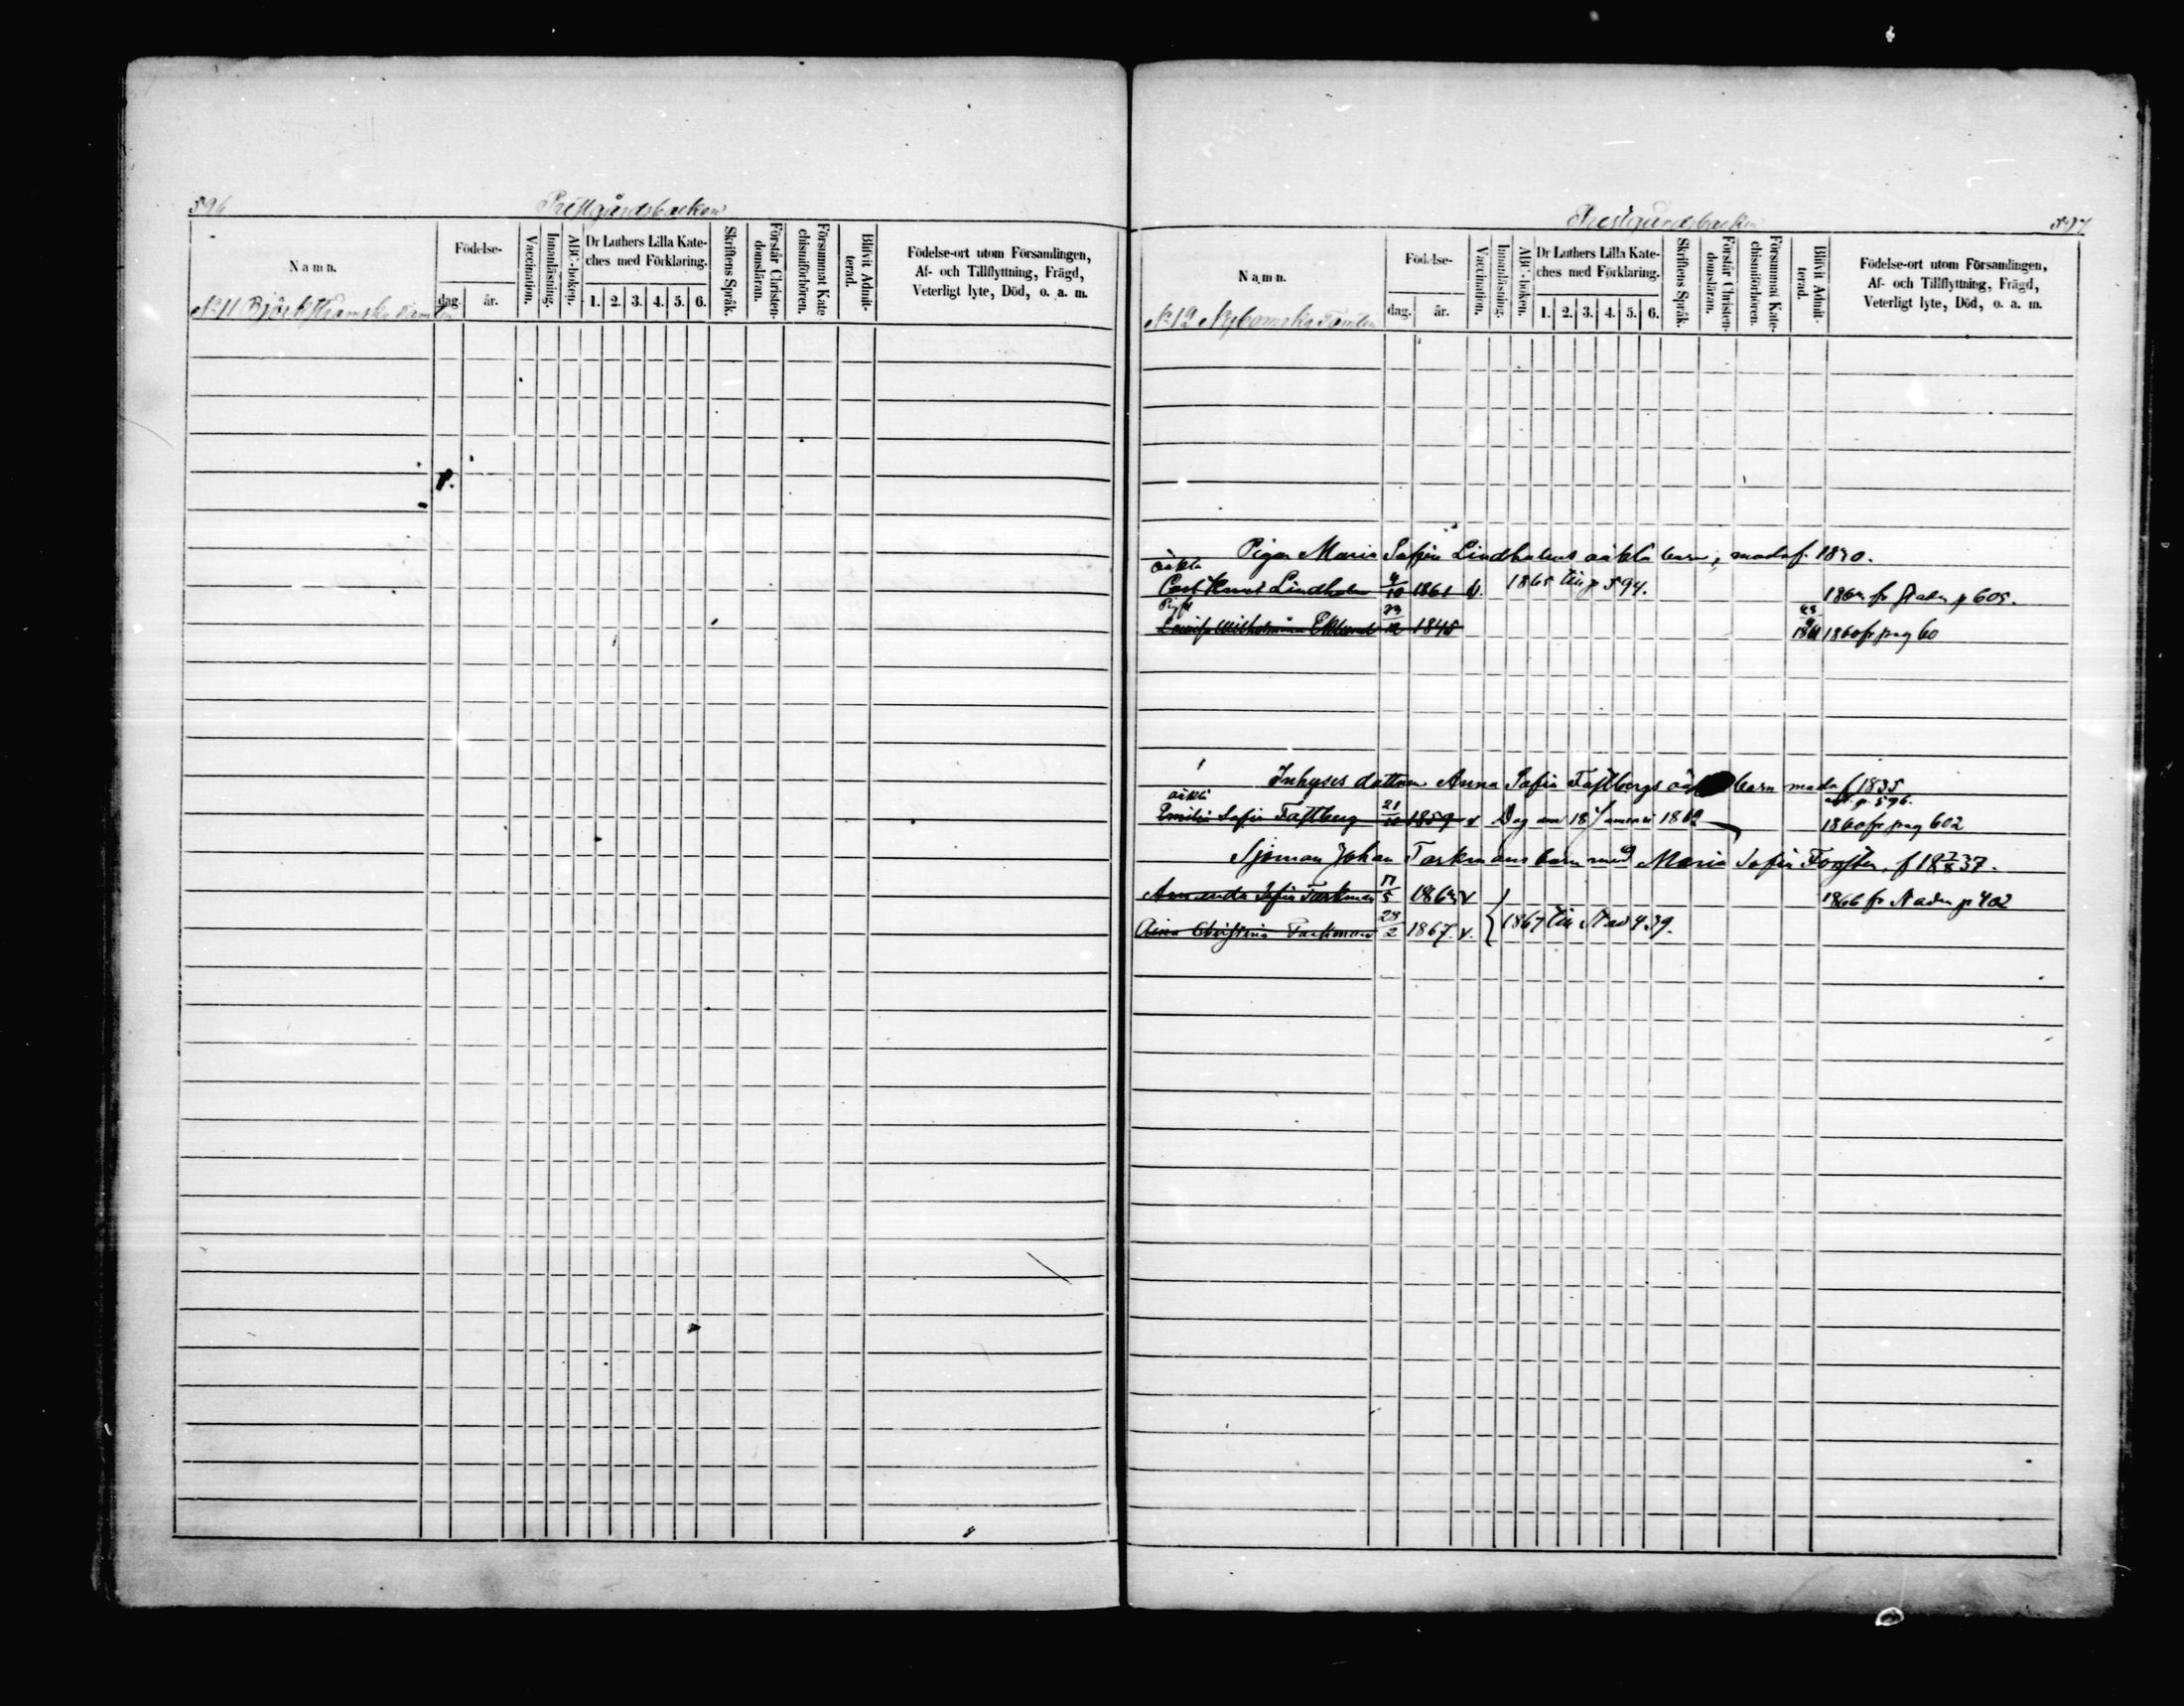 596
Prestgårdsbacken
Namn.
Födelse-
dag.
år.
Vaccination.
Innanläsning.
ABC-boken.
Dr Luthers Lilla Kate-
ches med Förklaring.
1. 2. 3. 4. 5. 6.
Skriftens Språk.
Förstår Christen-
domsläran.
Försummat Kate
chismiförhören.
Blifvit Admit-
terad.
Födelse-ort utom Församlingen,
Af- och Tillflyttning, Frägd,
Veterligt lyte, Död, o. a. m.
No 11 Björkstramska
Prestgårdsbacken
597
Namn.
Födelse-
dag.
år.
Vaccination.
Innanläsning.
ABC-boken.
Dr Luthers Lilla Kate-
ches med Förklaring.
1. 2. 3. 4. 5. 6.
Skriftens Språk.
Förstår Christen-
domsläran.
Försummat Kate-
chismiförhören.
Blifvit Admit-
terad.
Födelse-ort utom Församlingen,
Af- och Tillflyttning, Frägd,
Veterligt lyte, Död, o. a. m.
No 12 Nybomska Tomten
Pigan Maria Sofia Lindholms oäkta barn, 1830.
oäkta
Carl Knut Lindholm 4/10 1861 v. 1865 till p 594. fr p 605.
Pigan
Lovisa Wilhelmina Eklund 1845 1860 fr pag 60
Inhyses dottren Anna Sofia Fastbergs barn f 1835
oäkta p. 596.
Emilia Sofia Fastberg 21/10 1859 v Dog den 18 Januari 1862 1860 fr pag 602
Sjöman Johan Tarkmans barn med Maria Sofia f 18 7/8 37.
Amanda Sofia Tarkman 17/5 v 1866 fr p 402
Aina Christina Tarkman 28/2 1867. v. 1867 till 439.